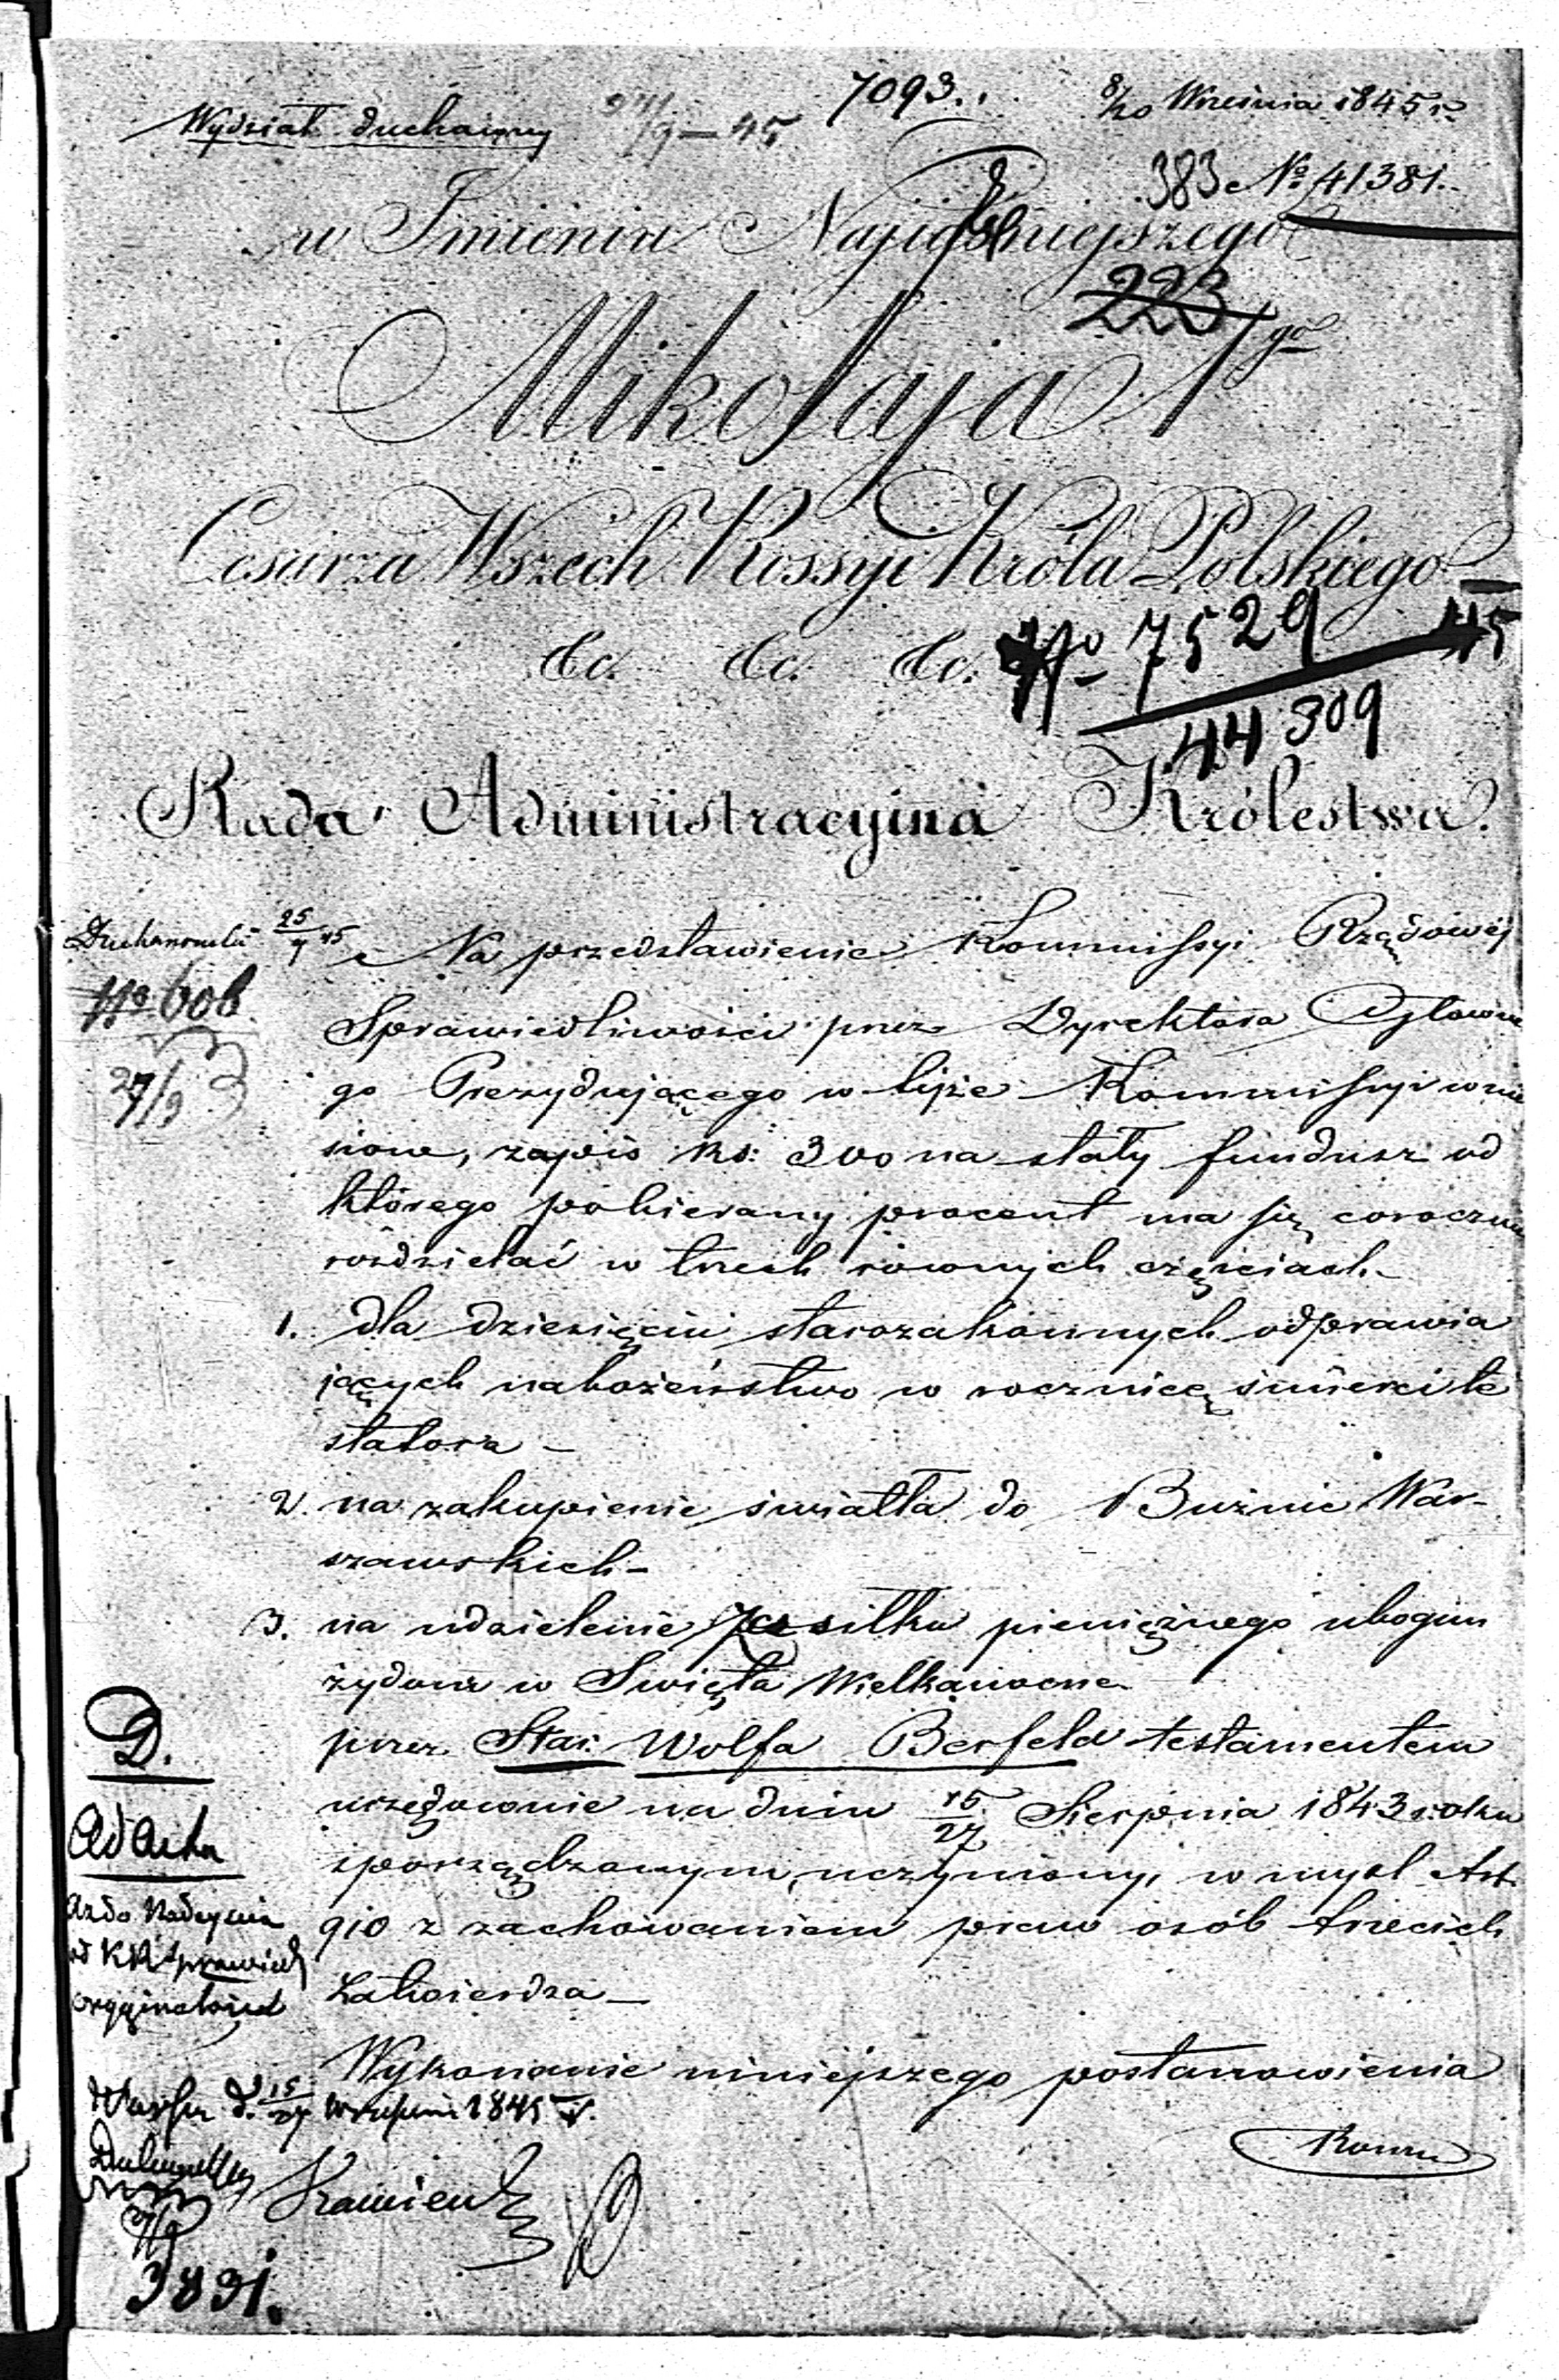 Wydział duchowny
24/9 – 45
7093.
8/20 Wrzesnia 1845 r.
383 No 41381.
w Imieniu Najiaśniejszego
223
Mikołaja 1go
Cesarza Wszech Rossyi Króla Polskiego
&c. &c. &c.
No 7529 45
44309
Rada Administracyina Królestwa.
25/9 45
No 606
27/9
Na przedstawienie Kommissyi Rządowéj
Sprawiedliwości przez Dyrektora Główne
go Prezydującego w tejże Kommissyi wnie
sione, zapis Rs: 300 na stały fundusz od
którego pobierany procent ma się corocznie
rozdzielać w trzech równych częściach –
1. dla dziesięciu starozakonnych odprawia
jących nabożeństwo w rocznicę śmierci te
statora –
2. na zakupienie światła do Bużnic War-
szawskich –
3. na udzielenie zasiłku pieniężnego ubogim
żydom w Swięta Wielkanocne
przez Star: Wolfa Berfeld testamentem
urzędownie na dniu 15/27 Sierpnia 1843 roku
sporządzonym, uczyniony, w myśl Art.
910 z zachowaniem praw osób trzecich
Zatwierdza –
Wykonanie niniejszego postanowienia
Komm
D.
Ad Acta
aż do Nadejścia
od KR Sprawied
oryginałów
d. 15/27 Września 1845 r.
3831.